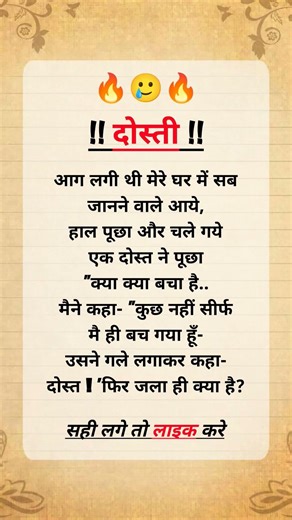 !! दोस्ती !!
आग लगी थी मेरे घर में सब
जानने वाले आये,
हाल पूछा और चले गये
एक दोस्त ने पूछा
"क्या क्या बचा है..
मैने कहा- "कुछ नहीं सीर्फ
मै ही बच गया हूँ-
उसने गले लगाकर कहा-
दोस्त ! 'फिर जला ही क्या है?
सही लगे तो लाइक करे